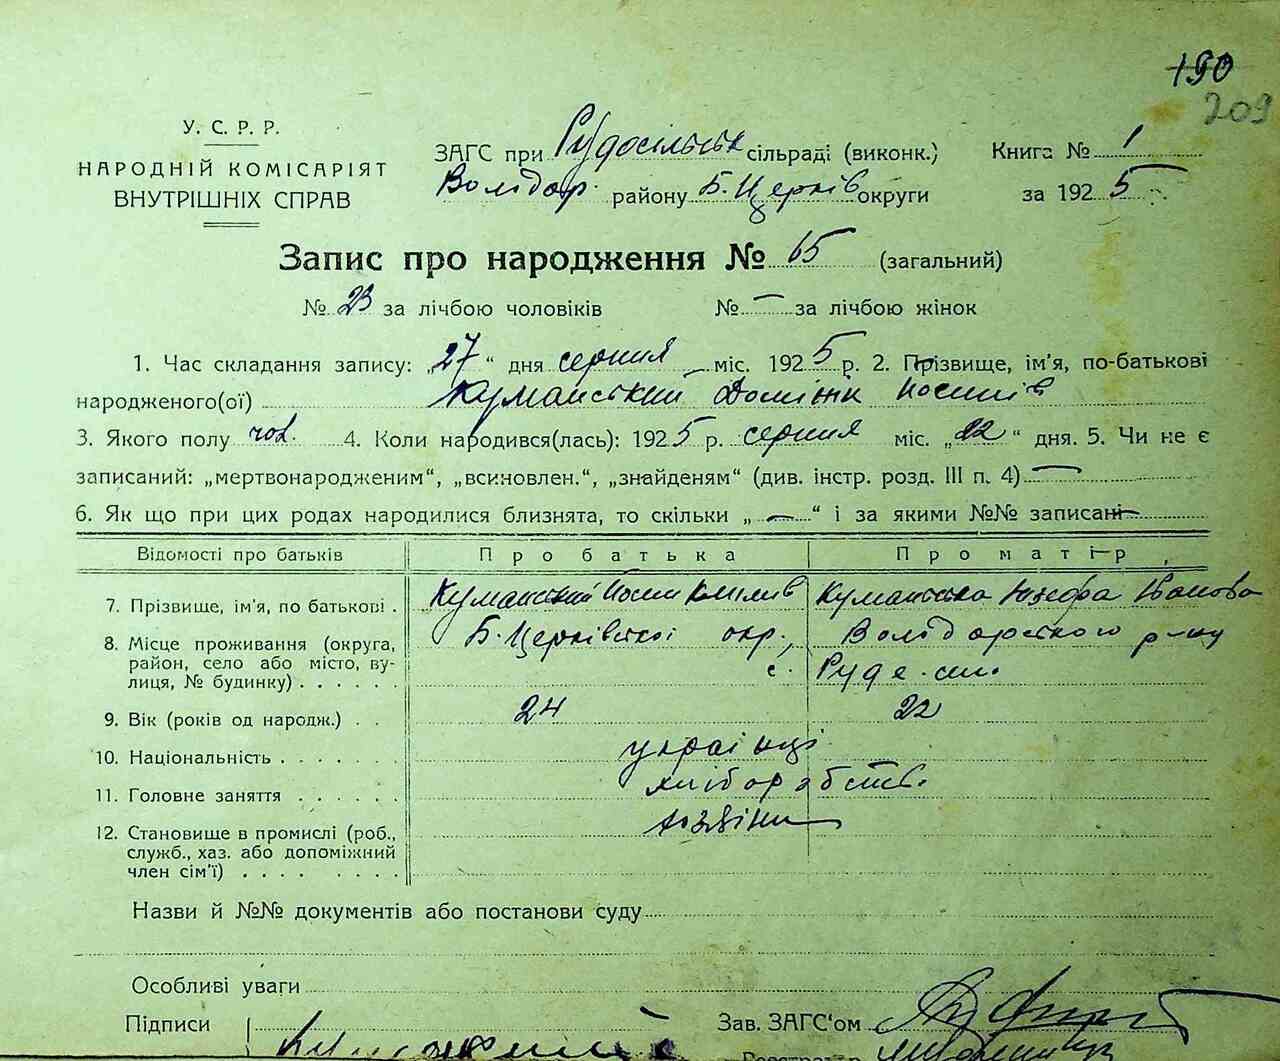 190
209
У. С. Р. Р.
НАРОДНІЙ КОМІСАРІЯТ
ВНУТРІШНІХ СПРАВ
ЗАГС при Рудосільськ сільраді (виконк.) Книга № 1
Володар. району Б. Церків округи за 1925
Запис про народження № 65 (загальний)
№ 23 за лічбою чоловіків № — за лічбою жінок
1. Час складання запису: „27“ дня серпня міс. 1925 р. 2. Прізвище, ім'я, по-батькові
народженого(ої) Куманський Домінік Йосипів
3. Якого полу чол. 4. Коли народився(лась): 1925 р. серпня міс. „22“ дня. 5. Чи не є
записаний: „мертвонародженим“, „всиновлен.“, „знайденям“ (див. інстр. розд. III п. 4) —
6. Як що при цих родах народилися близнята, то скільки „—“ і за якими №№ записані —
Відомості про батьків Про батька Про матір
7. Прізвище, ім'я, по батькові . Куманський Йосип Куманська Юзефа Іванова
8. Місце проживання (округа, район, село або місто, вулиця, № будинку) . . . . . . Б. Церківської окр., Володарського р-ну
с. Руде-сел.
9. Вік (років од народж.) . . 24 22
10. Національність . . . . . . . українці
11. Головне заняття . . . . . . хліборобств.
12. Становище в промислі (роб.,
служб., хаз. або допоміжний
член сім'ї) . . . . . . . .
Назви й №№ документів або постанови суду
Особливі уваги
Підписи Зав. ЗАГС'ом